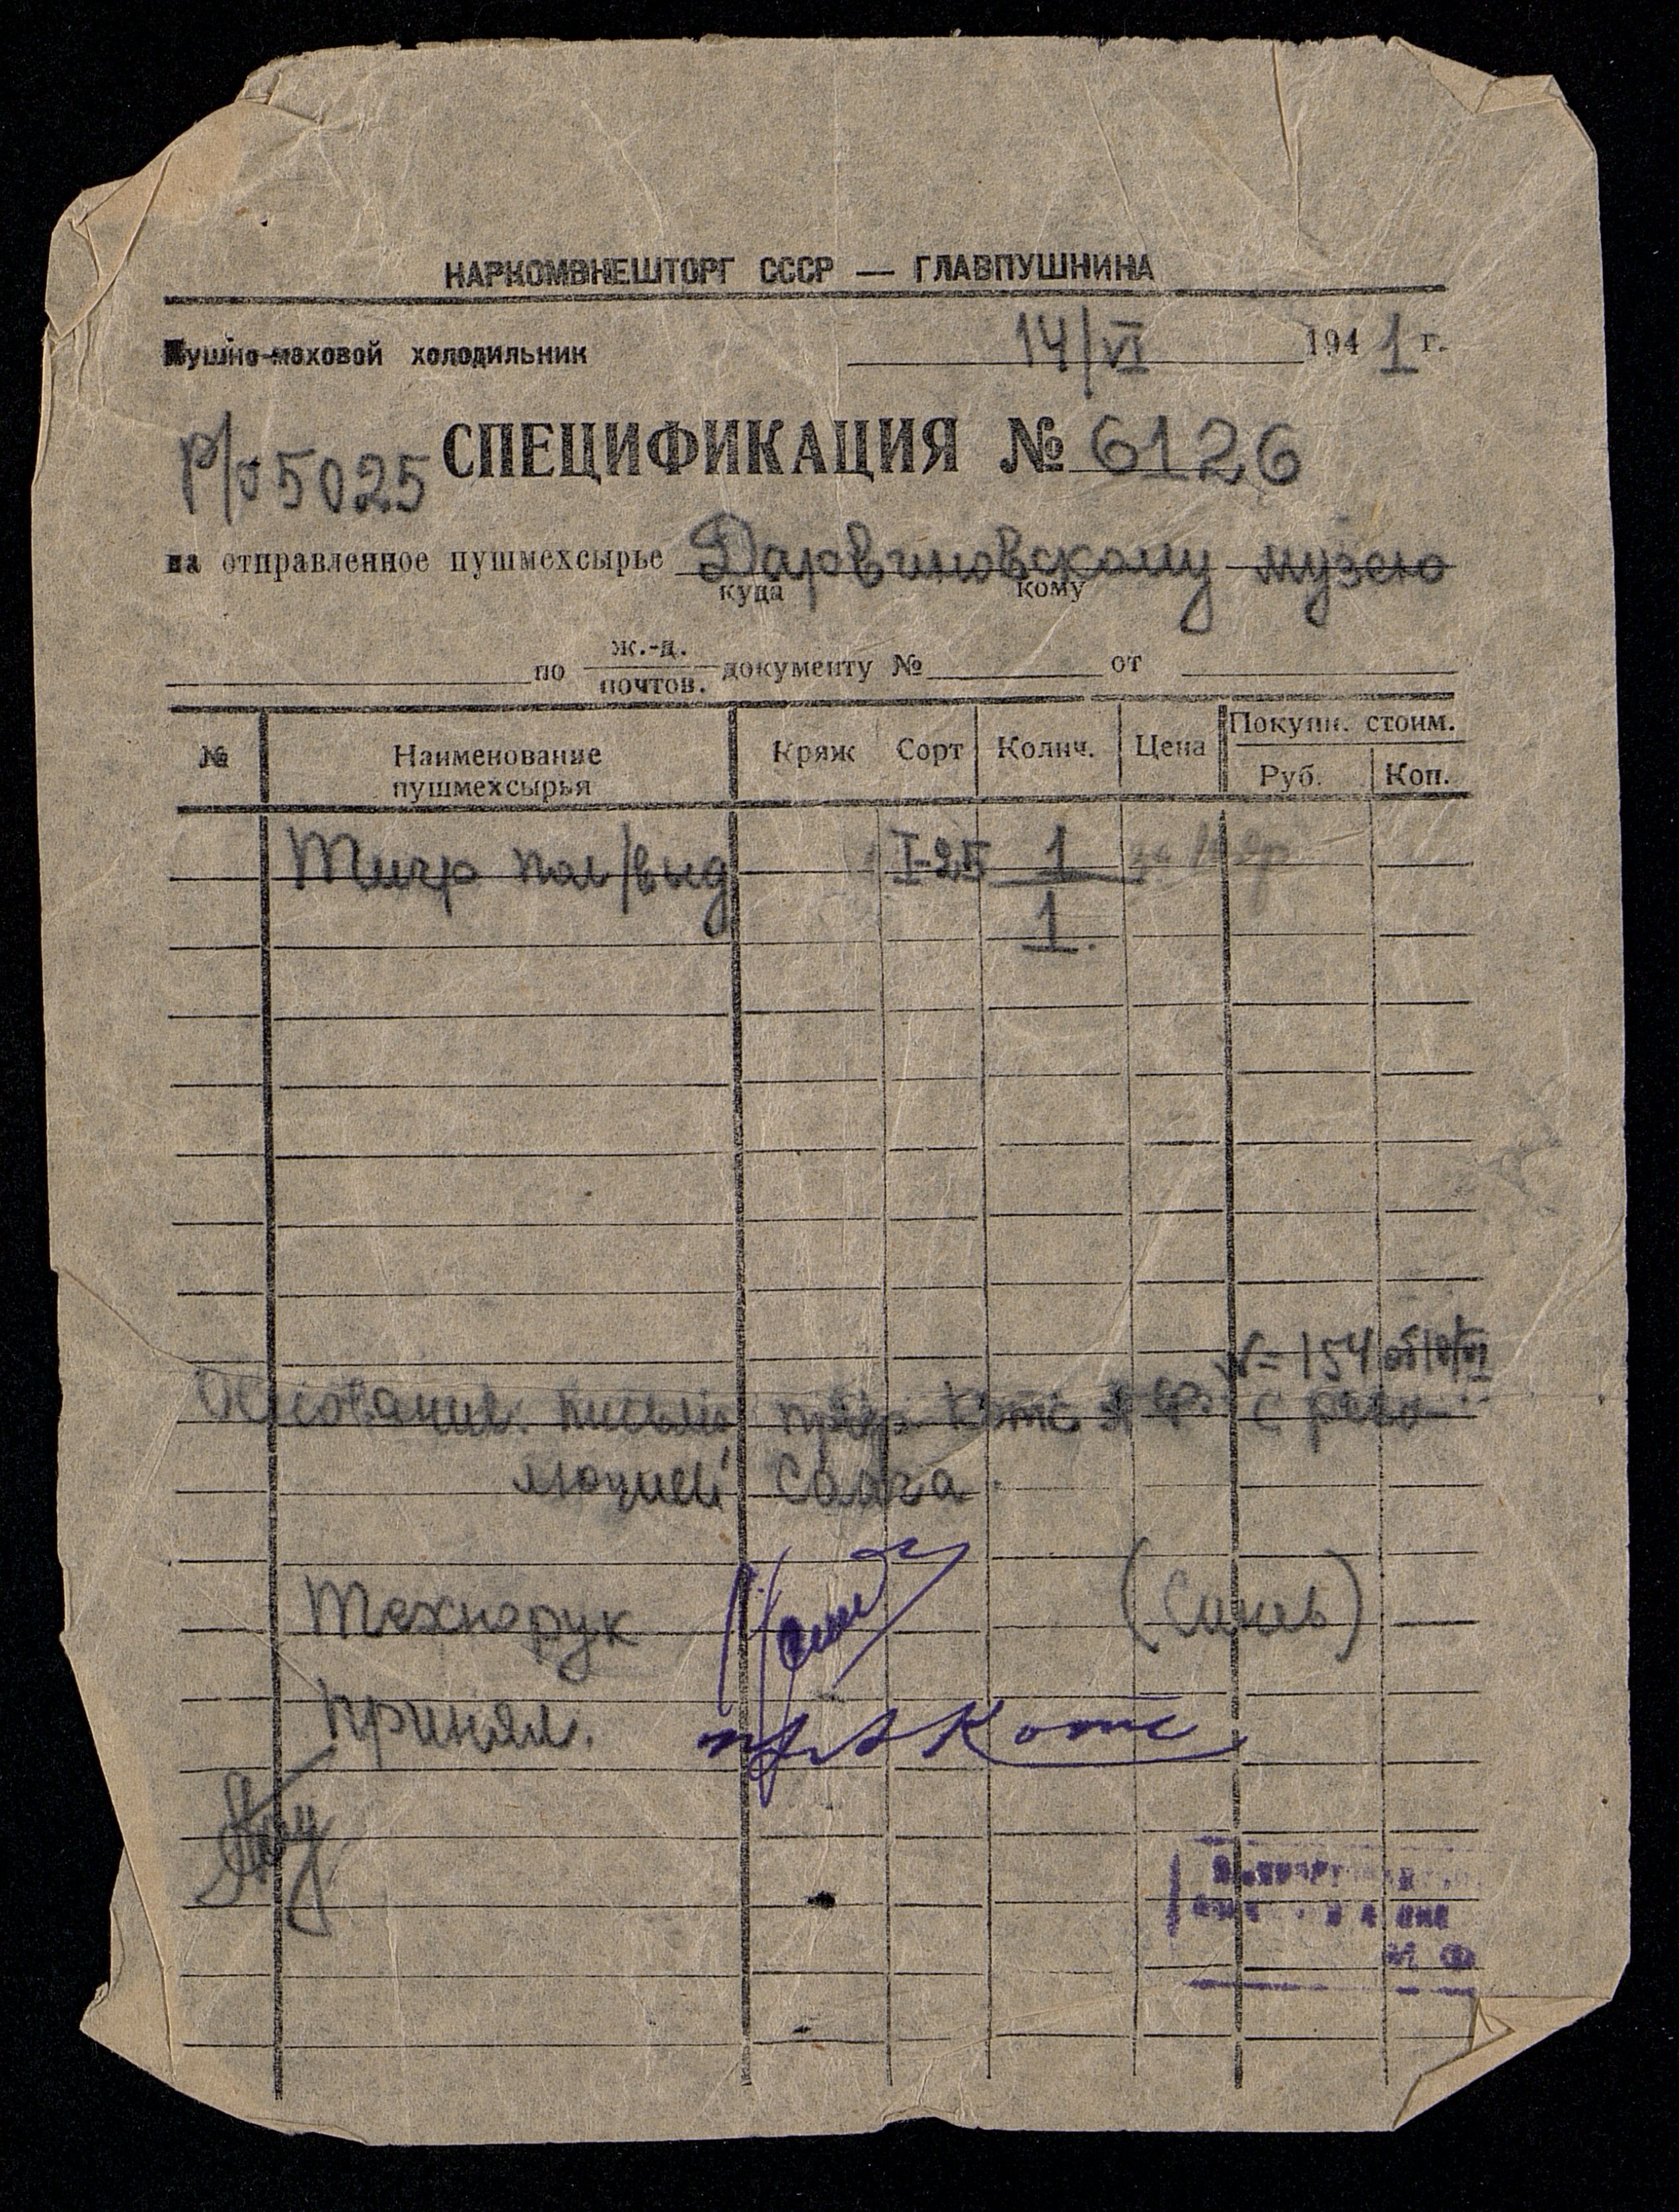 НАРКОМВНЕШТОРГ СССР — ГЛАВПУШНИНА
Пушно-меховой холодильник 14/VI 1941 г.
Р/о 5025 СПЕЦИФИКАЦИЯ № 6126
на отправленное пушмехсырье Дарвиновскому музею
куда кому
по ж.-д. почтов. документу № от
№ Наименование пушмехсырья Кряж Сорт Колич. Цена Покупн. стоим. Руб. Коп.
Тигр пол/вид I-25 1
1.
N=154 от
Основание: письмо проф. Котс А Ф. с резо-
люцией
Технорук
Принял. А Котс